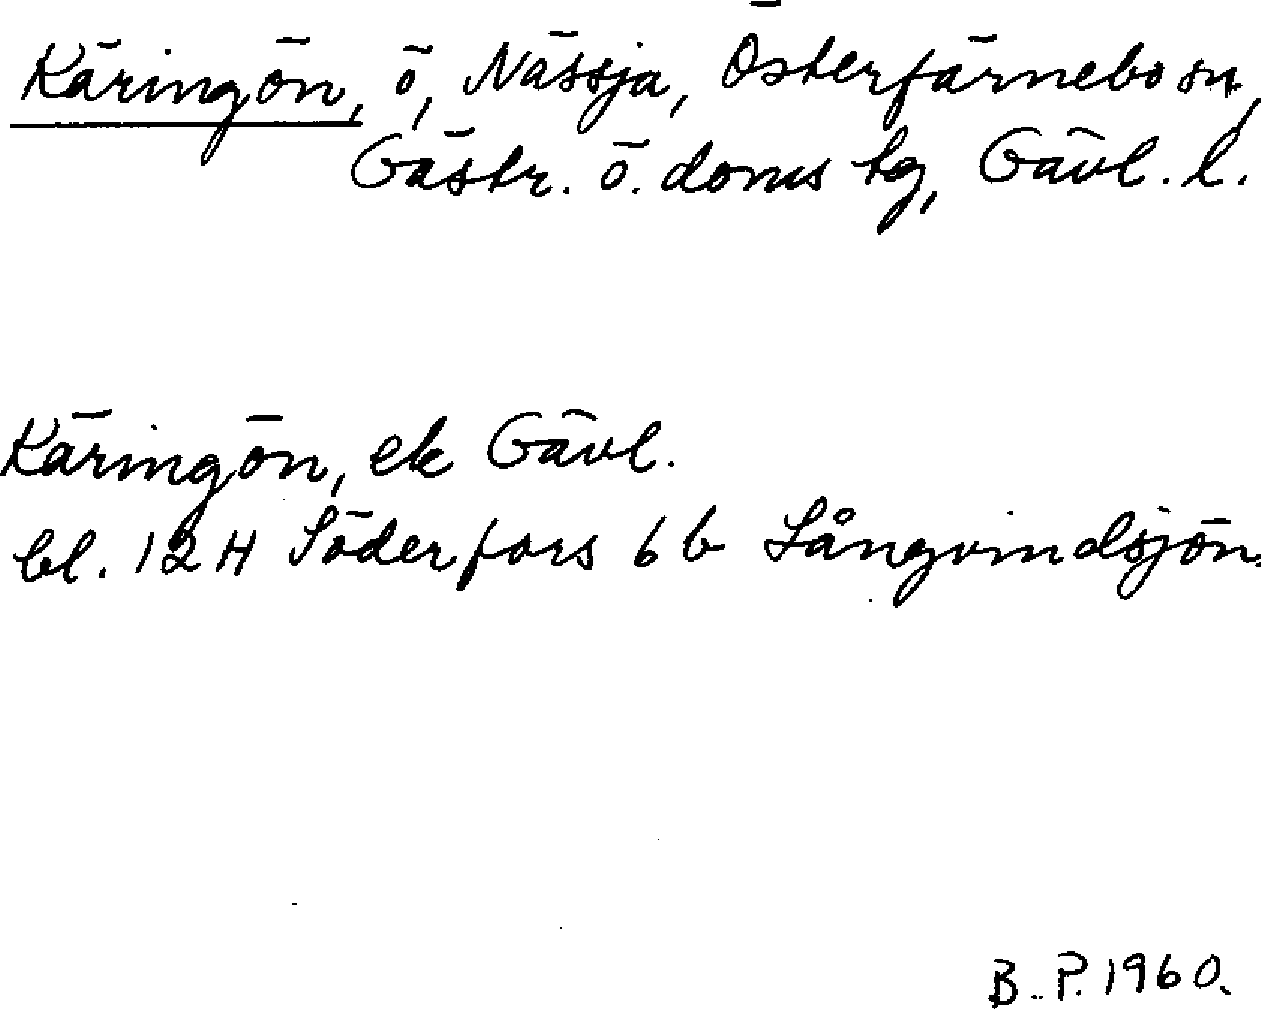 Käringön, ö, Nässja, Österfärnebo sn,
Gästr. ö. doms tg, Gävl. l.
Käringön, ek Gävl.
bl. 12H Söderfors 6 b Långvindsjön.
B. P. 1960.